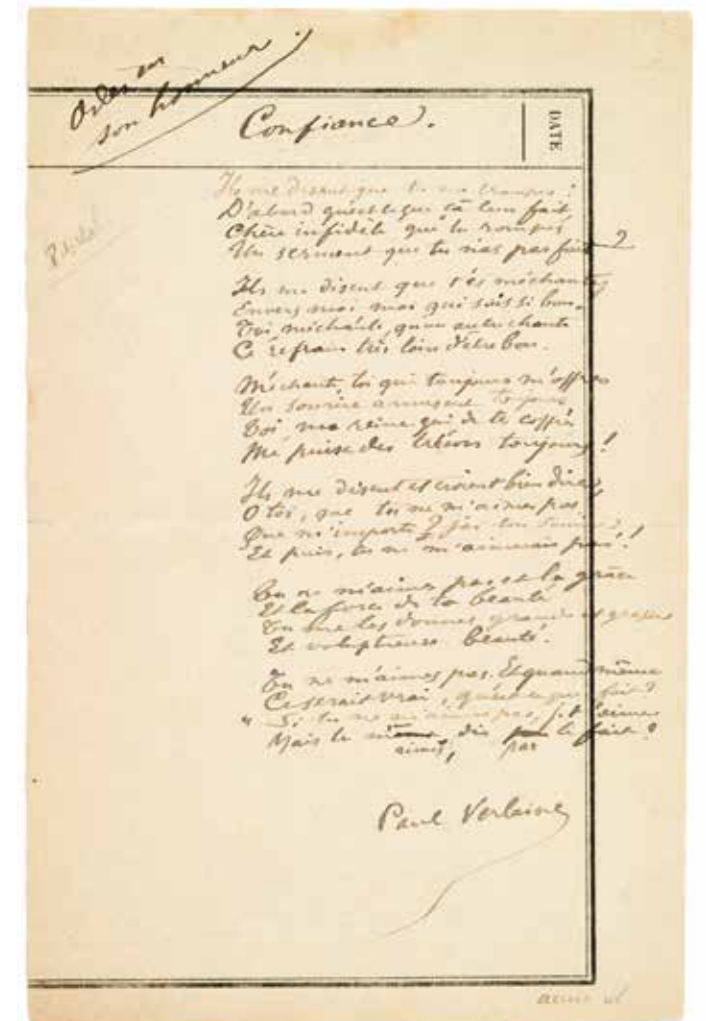 Odes en
son honneur.
Confiance.
DATE
Ils me disent que tu me trompes.
D'abord qu'est-ce que ça leur fait,
Chère infidèle que tu rompes
Un serment que tu n'as pas fait ?
Ils me disent que t'es méchante
Envers moi moi qui suis si bon.
Toi méchante, qu'un autre chante
Ce refrain très loin d'être bon.
Méchante, toi qui toujours m'offres
Un sourire amusant toujours
Toi, ma reine qui de tes coffres
Me puise des trésors toujours !
Ils me disent et croient bien dire,
O toi, que tu ne m'aimes pas
Que m'importe ? j'ai ton sourire,
Et puis, tu ne m'aimerais pas !
Tu ne m'aimes pas et la grâce
Et la force de ta beauté
Tu me les donnes, grande et grasse
Et voluptueuse beauté.
Tu ne m'aimes pas. Et quand même
Ce serait vrai, qu'est-ce que fait ?
" Si tu ne m'aimes pas, j' t'aime
Mais tu dis le fait !
aimes, par
Paul Verlaine